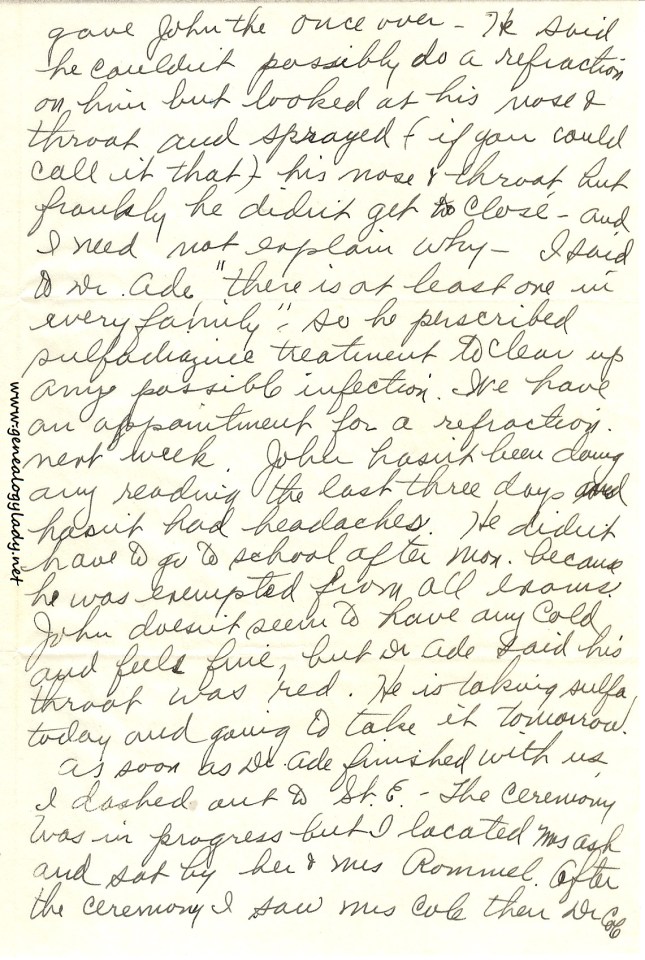 gave John the once over - He said
he couldn't possibly do a refraction
on him but looked at his nose &
throat and sprayed (if you could
call it that) his nose & throat but
frankly he didn't get to close - and
I need not explain why - I said
to Dr. Ade "there is at least one in
every family". So he perscribed
sulfadiazine treatment to clear up
any possible infection. We have
an appointment for a refraction
next week. John hasn't been doing
any reading the last three days and
hasn't had headaches. He didn't
have to go to school after Mon. because
he was exempted from all exams.
John doesn't seem to have any cold
and feels fine, but Dr Ade said his
throat was red. He is taking sulfa
today and going to take it tomorrow.
As soon as Dr. Ade finished with us
I dashed out to St. E. - The ceremony
was in progress but I located Mrs Ash
and sat by her & Mrs Rommel. After
the ceremony I saw Mrs Cole then Dr Cole
www.genealogylady.net